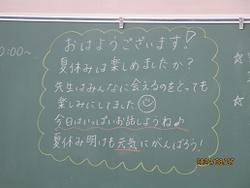 0:00~
おはようございます!
夏休みは楽しめましたか?
先生はみんなに会えるのをとっても
楽しみにしてました
今日はいっぱいお話しようね♪
夏休み明けも元気にがんばろう!